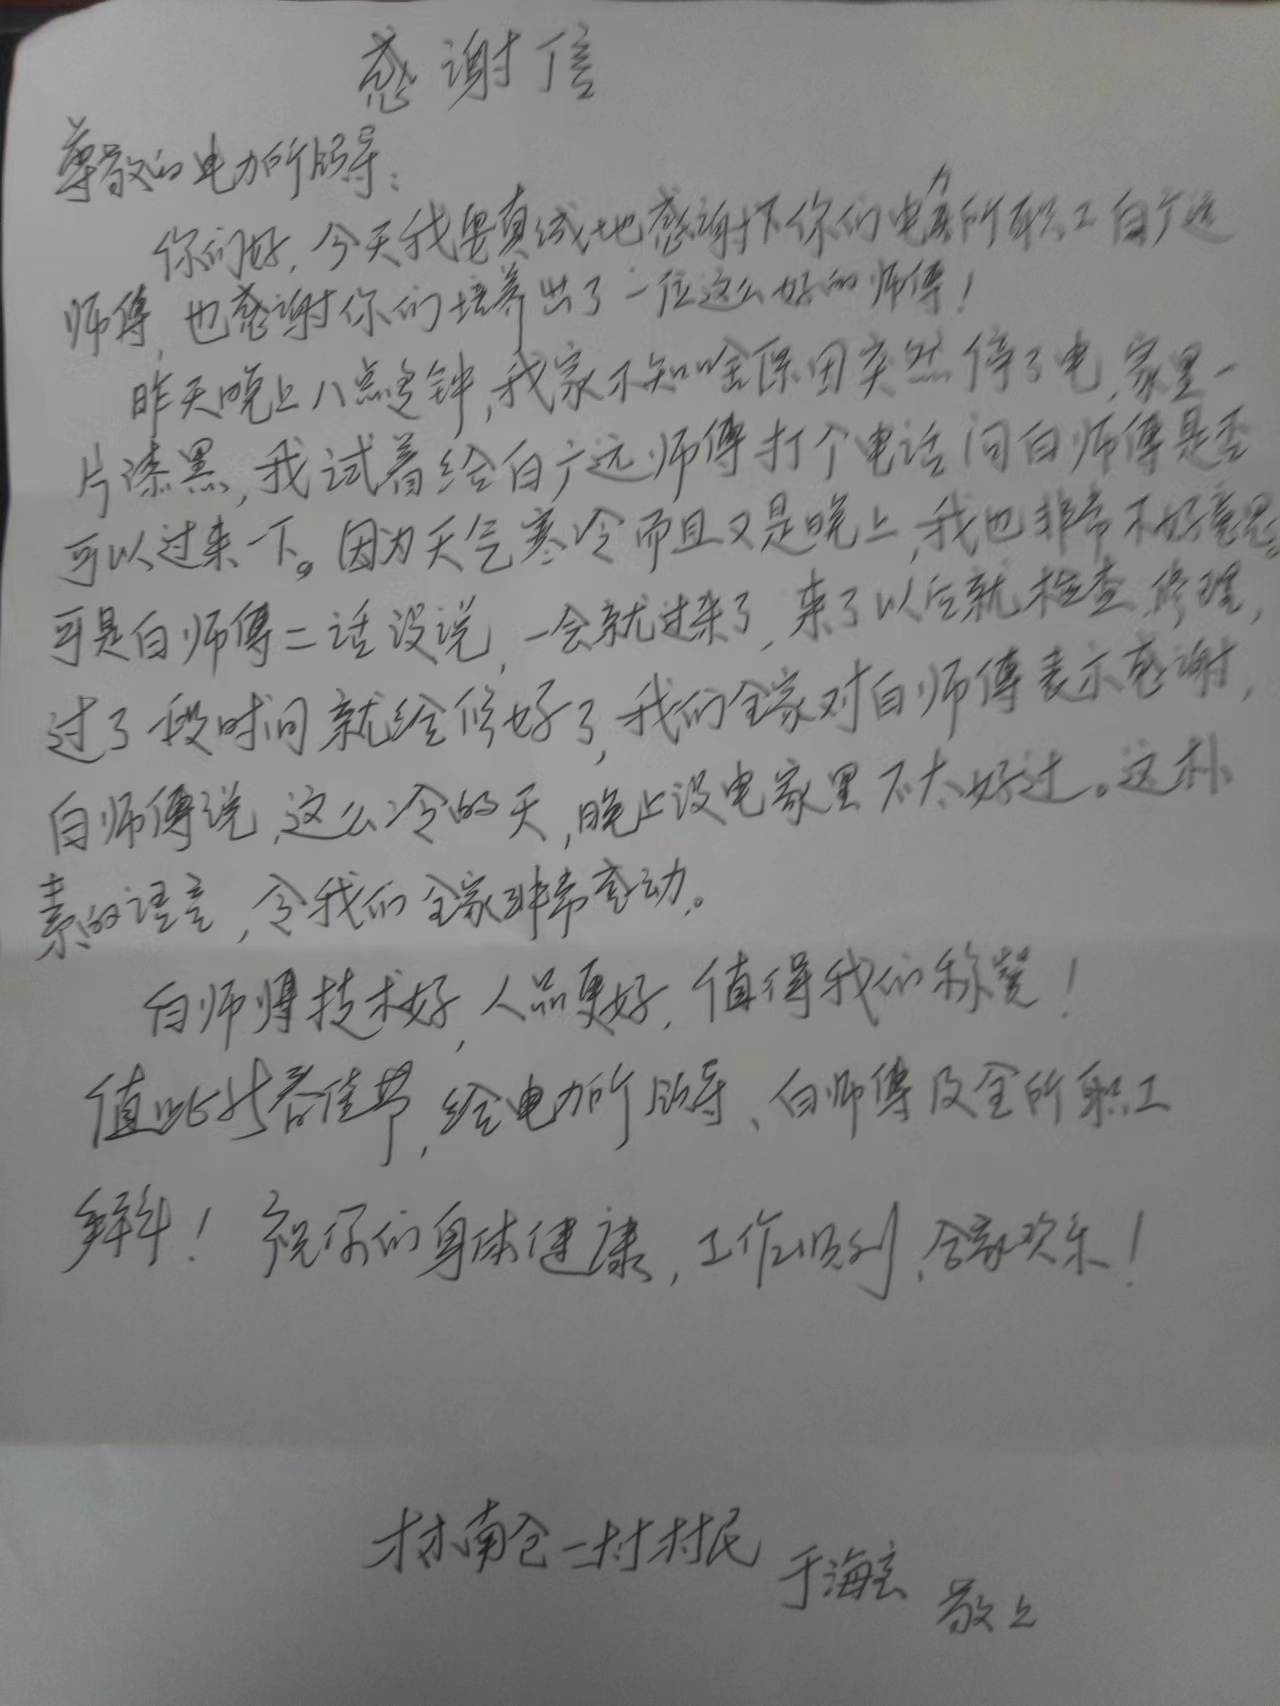 感谢信
尊敬的电力所领导：
你们好，今天我要真诚地感谢下你们电力所职工白广远
师傅，也感谢你们培养出了一位这么好的师傅！
昨天晚上八点多钟，我家不知啥原因突然停了电，家里一
片漆黑，我试着给白广远师傅打个电话问白师傅是否
可以过来一下。因为天气寒冷而且又是晚上，我也非常不好意思。
可是白师傅二话没说，一会就过来了，来了以后就检查、修理，
过了一段时间就给修好了，我们全家对白师傅表示感谢，
白师傅说，这么冷的天，晚上没电家里不太好过。这朴
素的语言，令我们全家非常感动。
白师傅技术好，人品更好，值得我们称赞！
值此新春佳节，给电力所领导、白师傅及全所职工
拜年！祝你们身体健康，工作顺利，合家欢乐！
林南仓一村村民 于海玄 敬上